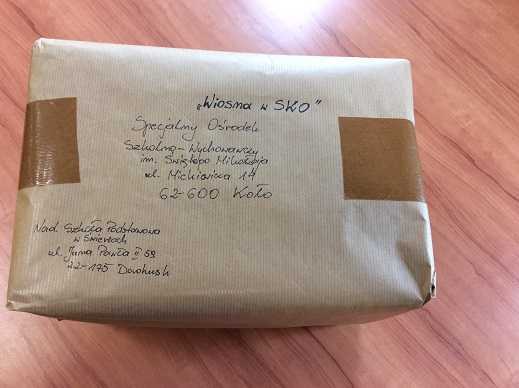 „Wiosna w SKO"
Specjalny Ośrodek
Szkolno-Wychowawczy
im. Świętego Mikołaja
ul. Mickiewicza 14
62-600 Koło
Nad. Szkoła Podstawowa
w
ul. Jana Pawła II 59
22-175 Dorohusk